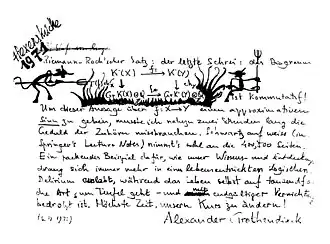 Hexenküche
1971
Riemann-Roch'scher Satz: der letzte Schrei: das Diagramm
K·(X) → K·(Y)
ist kommutatif!
Um dieser Aussage über f: X → Y einen approximativen
Sinn zu geben, musste ich nahezu zwei Stunden lang die
Geduld der Zuhörer missbrauchen. Schwartz auf weiss (in
Springer's Lecture Notes) nimmt's wohl an die 400, 500 Seiten.
Ein packendes Beispiel dafür, wie unser Wissens- und Entdeckungs-
drang sich immer mehr in einem lebensentrückten logischen
Delirium auslebt, während das Leben selbst auf tausendfache
Art zum Teufel geht - und mit endgültiger Vernichtung
bedroht ist. Höchste Zeit, unsern Kurs zu ändern!
Alexander Grothendieck